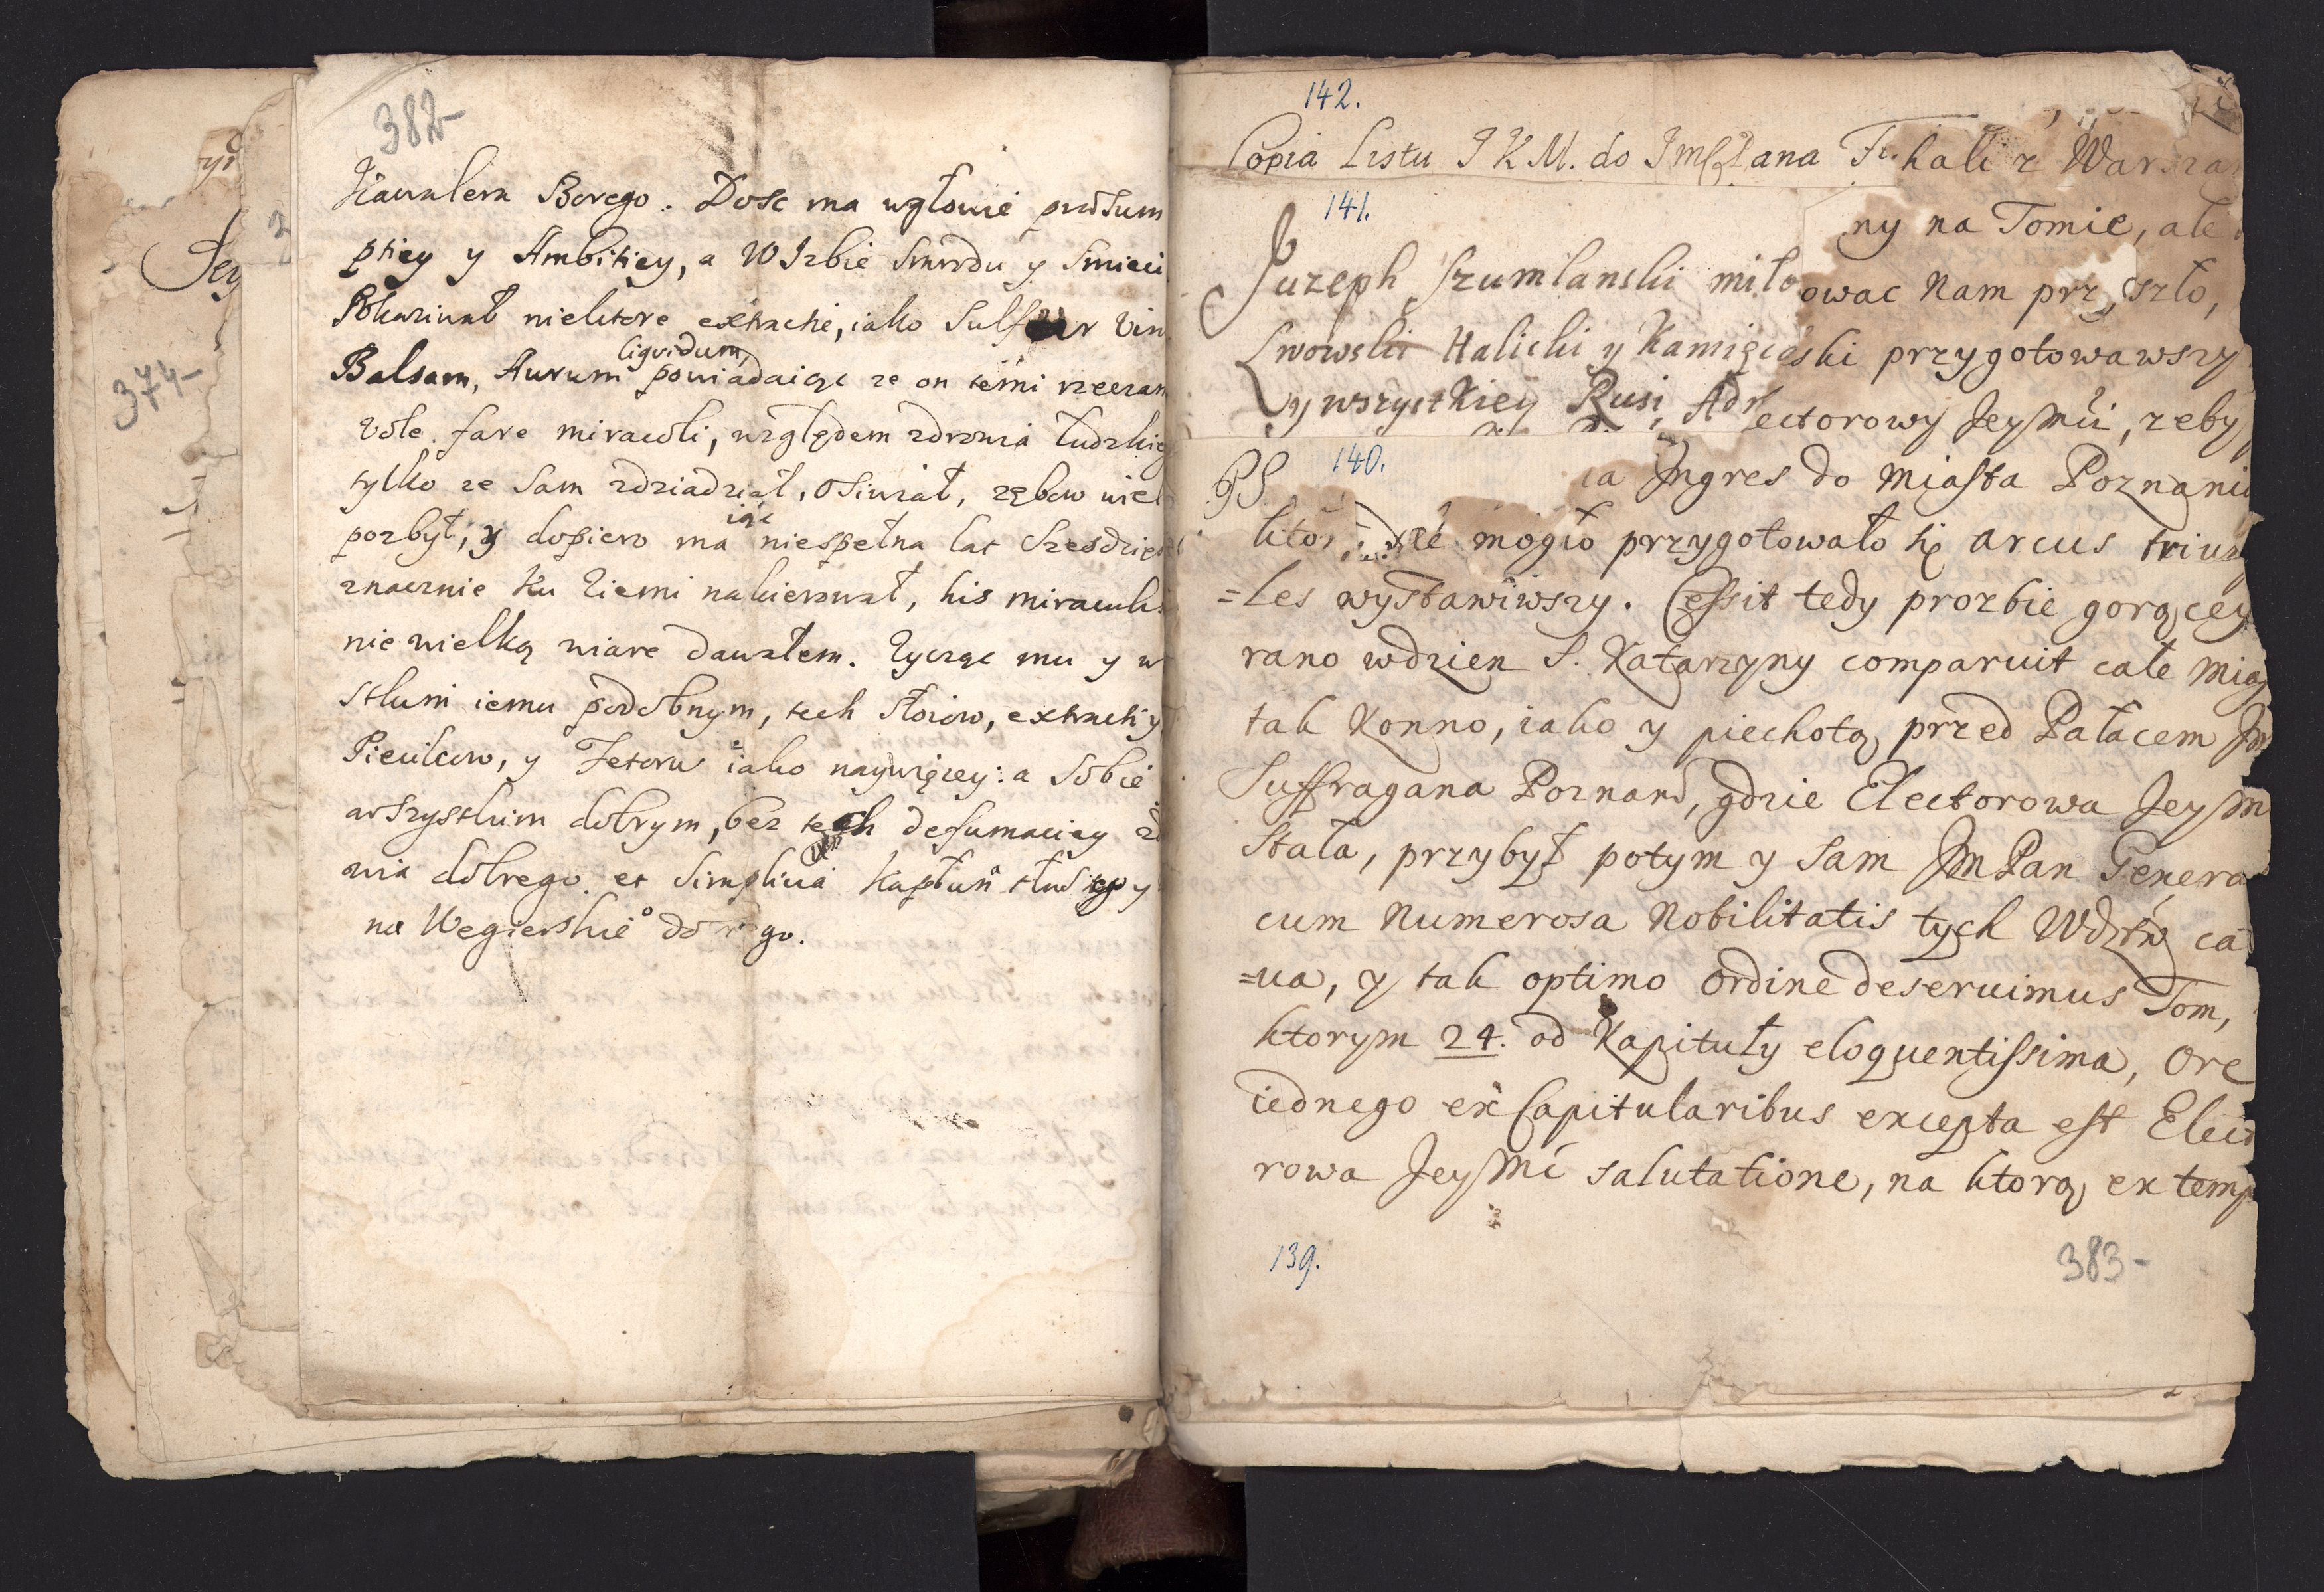 382-
Kawalera Borego. Dosc ma wgłowie præsum
ptiey y Ambitiey, a W Izbie Smrodu y Smieci
Pokaziwał niektore extracte, iako Sulfur vin
liquidum
Balsam, Aurum powiadaiąc ze on temi rzeczam
vole fare miracoli, względem zdrowia ludzkieg
tylko ze Sam zdziadział, Osiwiał, zębow wiel
iąc
pozbył, y dopiero ma niespełna lat Szesdzies
znacznie ku Ziemi nakierował, his miraculis
nie wielką wiare dawałem. Zycząc mu y w
stkim iemu podobnym, tech słoiow, extracti y
Piecikow, y Fetoru iako naywięcey: a Sobie
wszystkim dobrym, bez tych defumaciey zd
wia dobrego et Simplicia Kapłun tłustego y
na Wegierskie do go.
374-
Jey
142.
Copia Listu J K M. do Jmści Pana
kali z Warsza
141.
ny na Tomie, ale
Juzeph Szumlanski miło
owac Nam prz szło,
Lwowski Halicki y Kamięc ski przygotowawszy
y wszystkiey Rusi, Adm
ectorowy Jey Mći, zeby
140.
PS
ia Ingres do Miasta Poznania
kto ze mogło przygotowało się arcus trium
=les wystawiwszy. Cessit tedy prozbie gorącey
rano wdzien S. Katarzyny comparuit całe Mias
tak Konno, iako y piechotą przed Pałacem Jm
Suffragana Poznans, gdzie Electorowa Jey Mc
Stała, przybył potym y Sam Jm Pan Genera
cum Numerosa Nobilitatis tych Wdztw ca
=ua, y tak optimo ordine deseruimus Tom,
ktorym 24. od Kapituły eloquentissima, Ore
iednego ex Capitularibus excepta est Elect
rowa Jey Mć salutatione, na ktorą ex temp
139.
383-